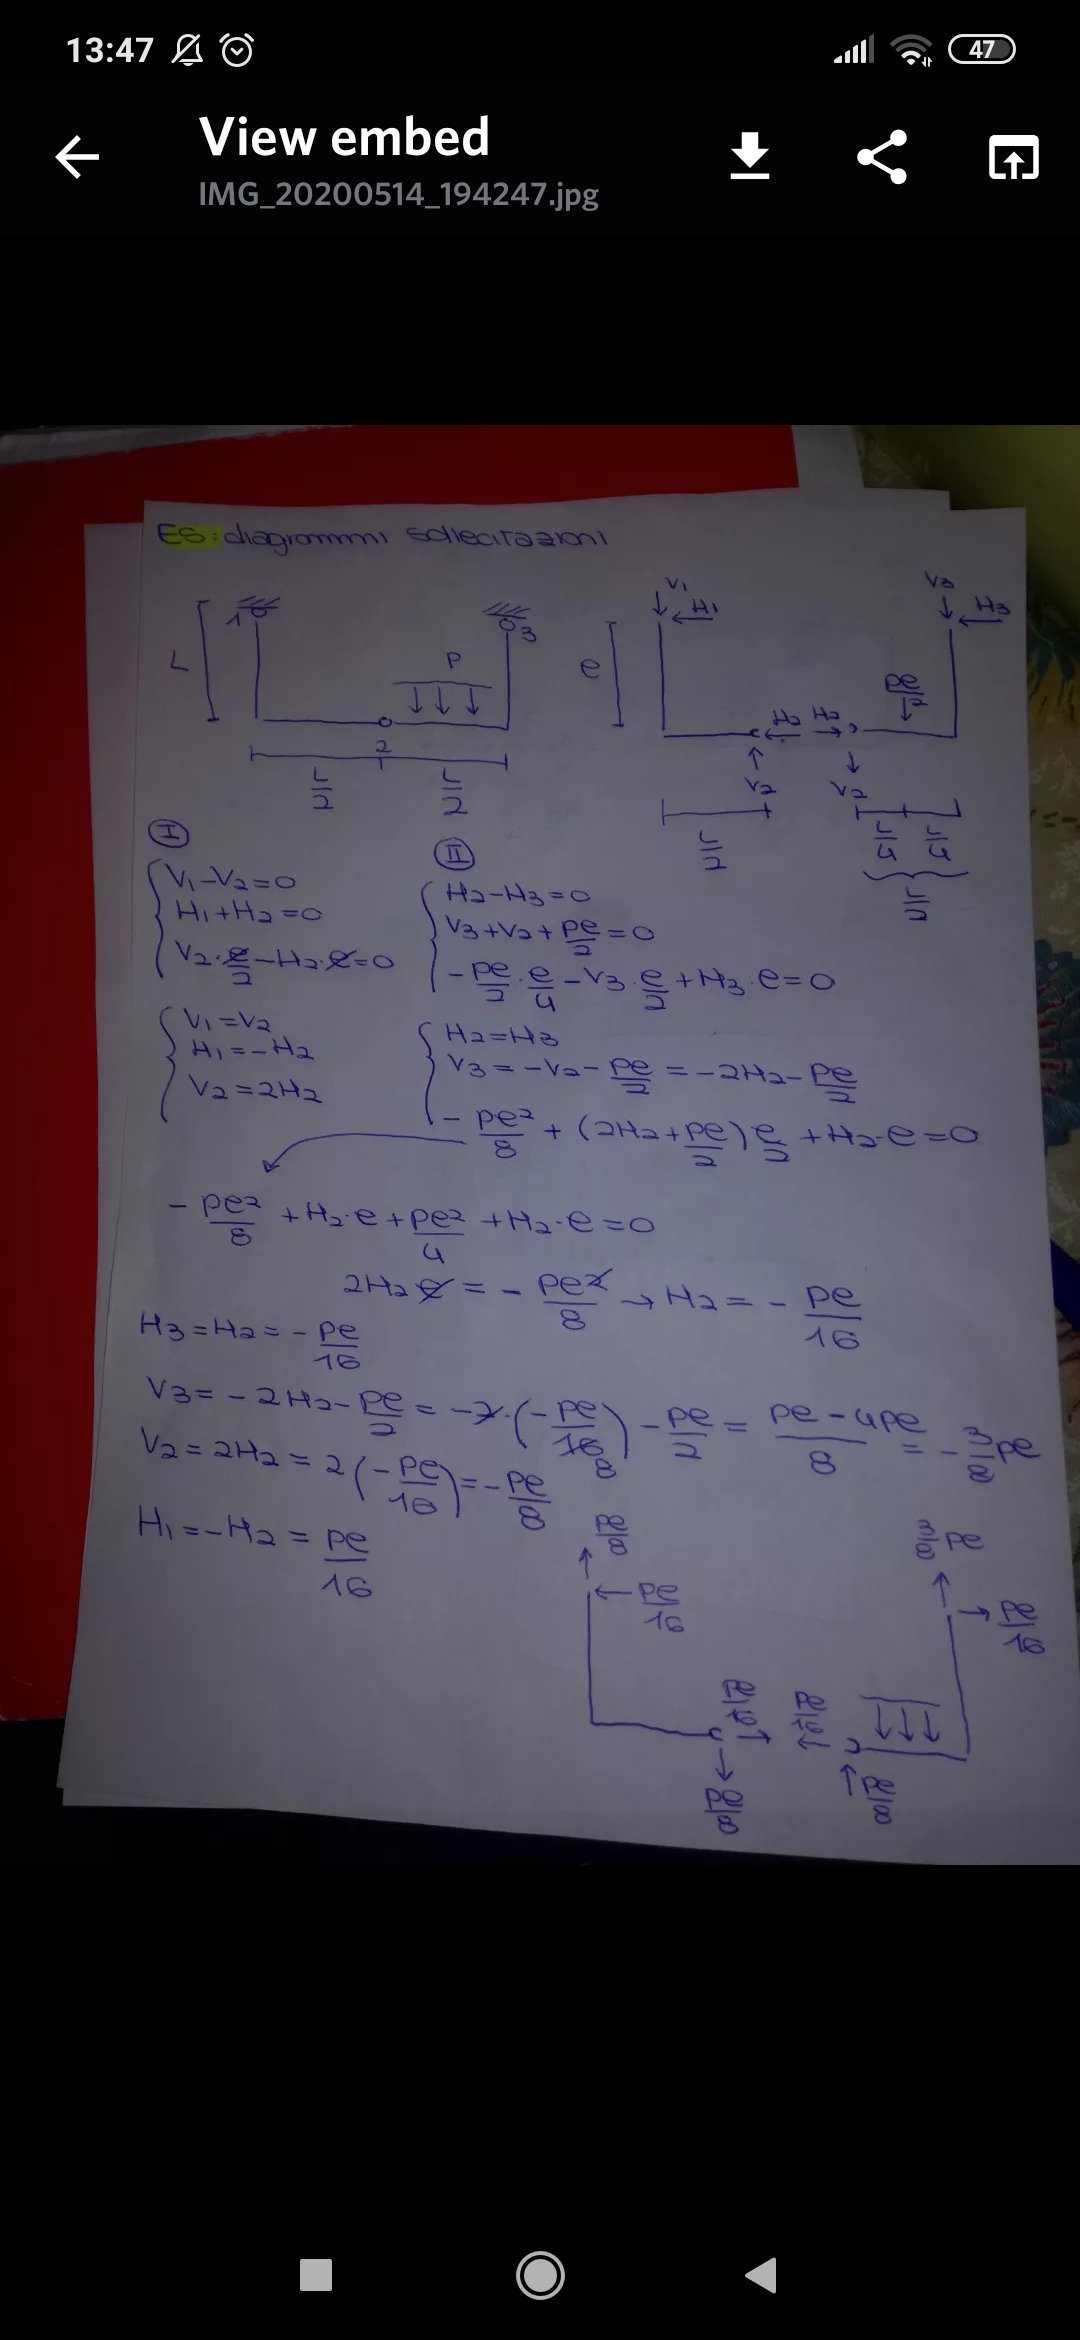 13:47
47
View embed
IMG_20200514_194247.jpg
ES: diagrammi sollecitazioni
1
3
L
P
2
L/2
L/2
V1
H1
V3
H3
e
pe/2
H2 H2
V2
V2
L/2
L/4 L/4
L/2
I
V1-V2=0
H1+H2=0
V2·e/2-H2·e=0
V1=V2
H1=-H2
V2=2H2
II
H2-H3=0
V3+V2+pe/2=0
-pe/2·e/4-V3·e/2+H3·e=0
H2=H3
V3=-V2-pe/2=-2H2-pe/2
-pe²/8+(2H2+pe/2)e/2+H2·e=0
-pe²/8+H2·e+pe²/4+H2·e=0
2H2e=-pe²/8→H2=-pe/16
H3=H2=-pe/16
V3=-2H2-pe/2=-2·(-pe/16 8)-pe/2=pe-4pe/8=-3/8pe
V2=2H2=2(-pe/16)=-pe/8
H1=-H2=pe/16
pe/8
pe/16
3/8 pe
pe/16
pe/16
pe/16
pe/8
pe/8